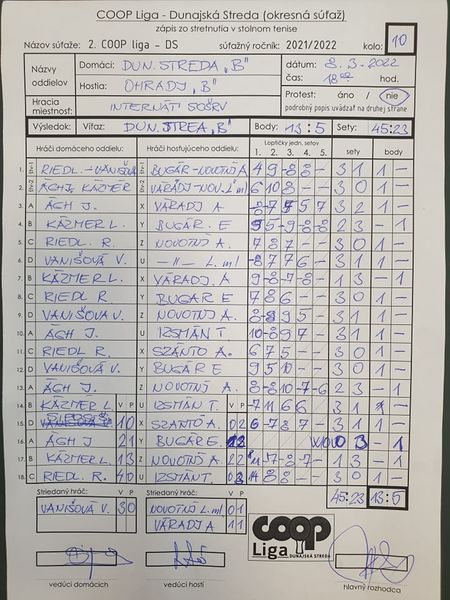 COOP Liga - Dunajská Streda (okresná súťaž)
zápis zo stretnutia v stolnom tenise
Názov súťaže: 2. COOP liga - DS súťažný ročník: 2021/2022 kolo: 10
Názvy oddielov
Domáci: DUN. STREDA „B"
Hostia: OHRADY „B"
dátum: 8. 3. 2022
čas: 18 00 hod.
Hracia miestnosť: INTERNÁT SOŠRV
Protest: áno / nie
podrobný popis uvádzať na druhej strane
Výsledok: Víťaz: DUN. STREA „B" Body: 13 : 5 Sety: 45:23
Hráči domáceho oddielu: Hráči hosťujúceho oddielu: Loptičky jedn. setov sety body
1. 2. 3. 4. 5.
1. RIEDL - VANIŠOVÁ BUGÁR - NOVOTNÝ A 4 9 -8 8 - 3 1 1 -
2. ÁGH J. KÁZMÉR VÁRADJ - NOV. L. ml 6 10 8 - - 3 0 1 -
3. A ÁGH J. X VÁRADJ A 3 2 1 -
4. B KÁZMER L. Y BUGÁR. E 2 3 - 1
5. C RIEDL. R. Z NOVOTNÝ A. 7 8 7 - - 3 0 1 -
6. D VANIŠOVÁ V. U - 11 - L. ml -8 7 7 6 - 3 1 1 -
7. B KÁZMER L. X VÁRADJ. A 9 -8 -7 -8 - 1 3 - 1
8. C RIEDL R. Y BUGÁR E 7 8 6 - - 3 0 1 -
9. D VANIŠOVÁ V. Z NOVOTNÝ A. 3 1 1 -
10. A ÁGH J. U IZSMÁN T 10 -8 9 7 - 3 1 1 -
11. C RIEDL R. X SZÁNTÓ A. 6 7 5 - - 3 0 1 -
12. D VANIŠOVÁ V. Y BUGÁR E 9 5 10 - - 3 0 1 -
13. A ÁGH J. Z NOVOTNÝ A. 8 -8 -10 7 -6 2 3 - 1
14. B KÁZMER L V P U IZSMÁN T. V P 7 -11 6 6 3 1 1 -
15. D X SZÁNTÓ A. 0 2 6 -7 8 7 - 3 1 1 -
16. A ÁGH J 2 1 Y BUGÁR E. WO 0 3 - 1
17. B KÁZMER L. 1 3 Z NOVOTNÝ A 2 2 1 3 - 1
18. C RIEDL. R. 4 0 U IZSMÁN T. 3 0 1 -
Striedaný hráč: V P Striedaný hráč: V P 45:23 13:5
VANIŠOVÁ V. 3 0 NOVOTNÝ L. ml 0 1
VÁRADJ A 1 1
COOP
Liga DUNAJSKÁ STREDA
vedúci domácich vedúci hostí hlavný rozhodca